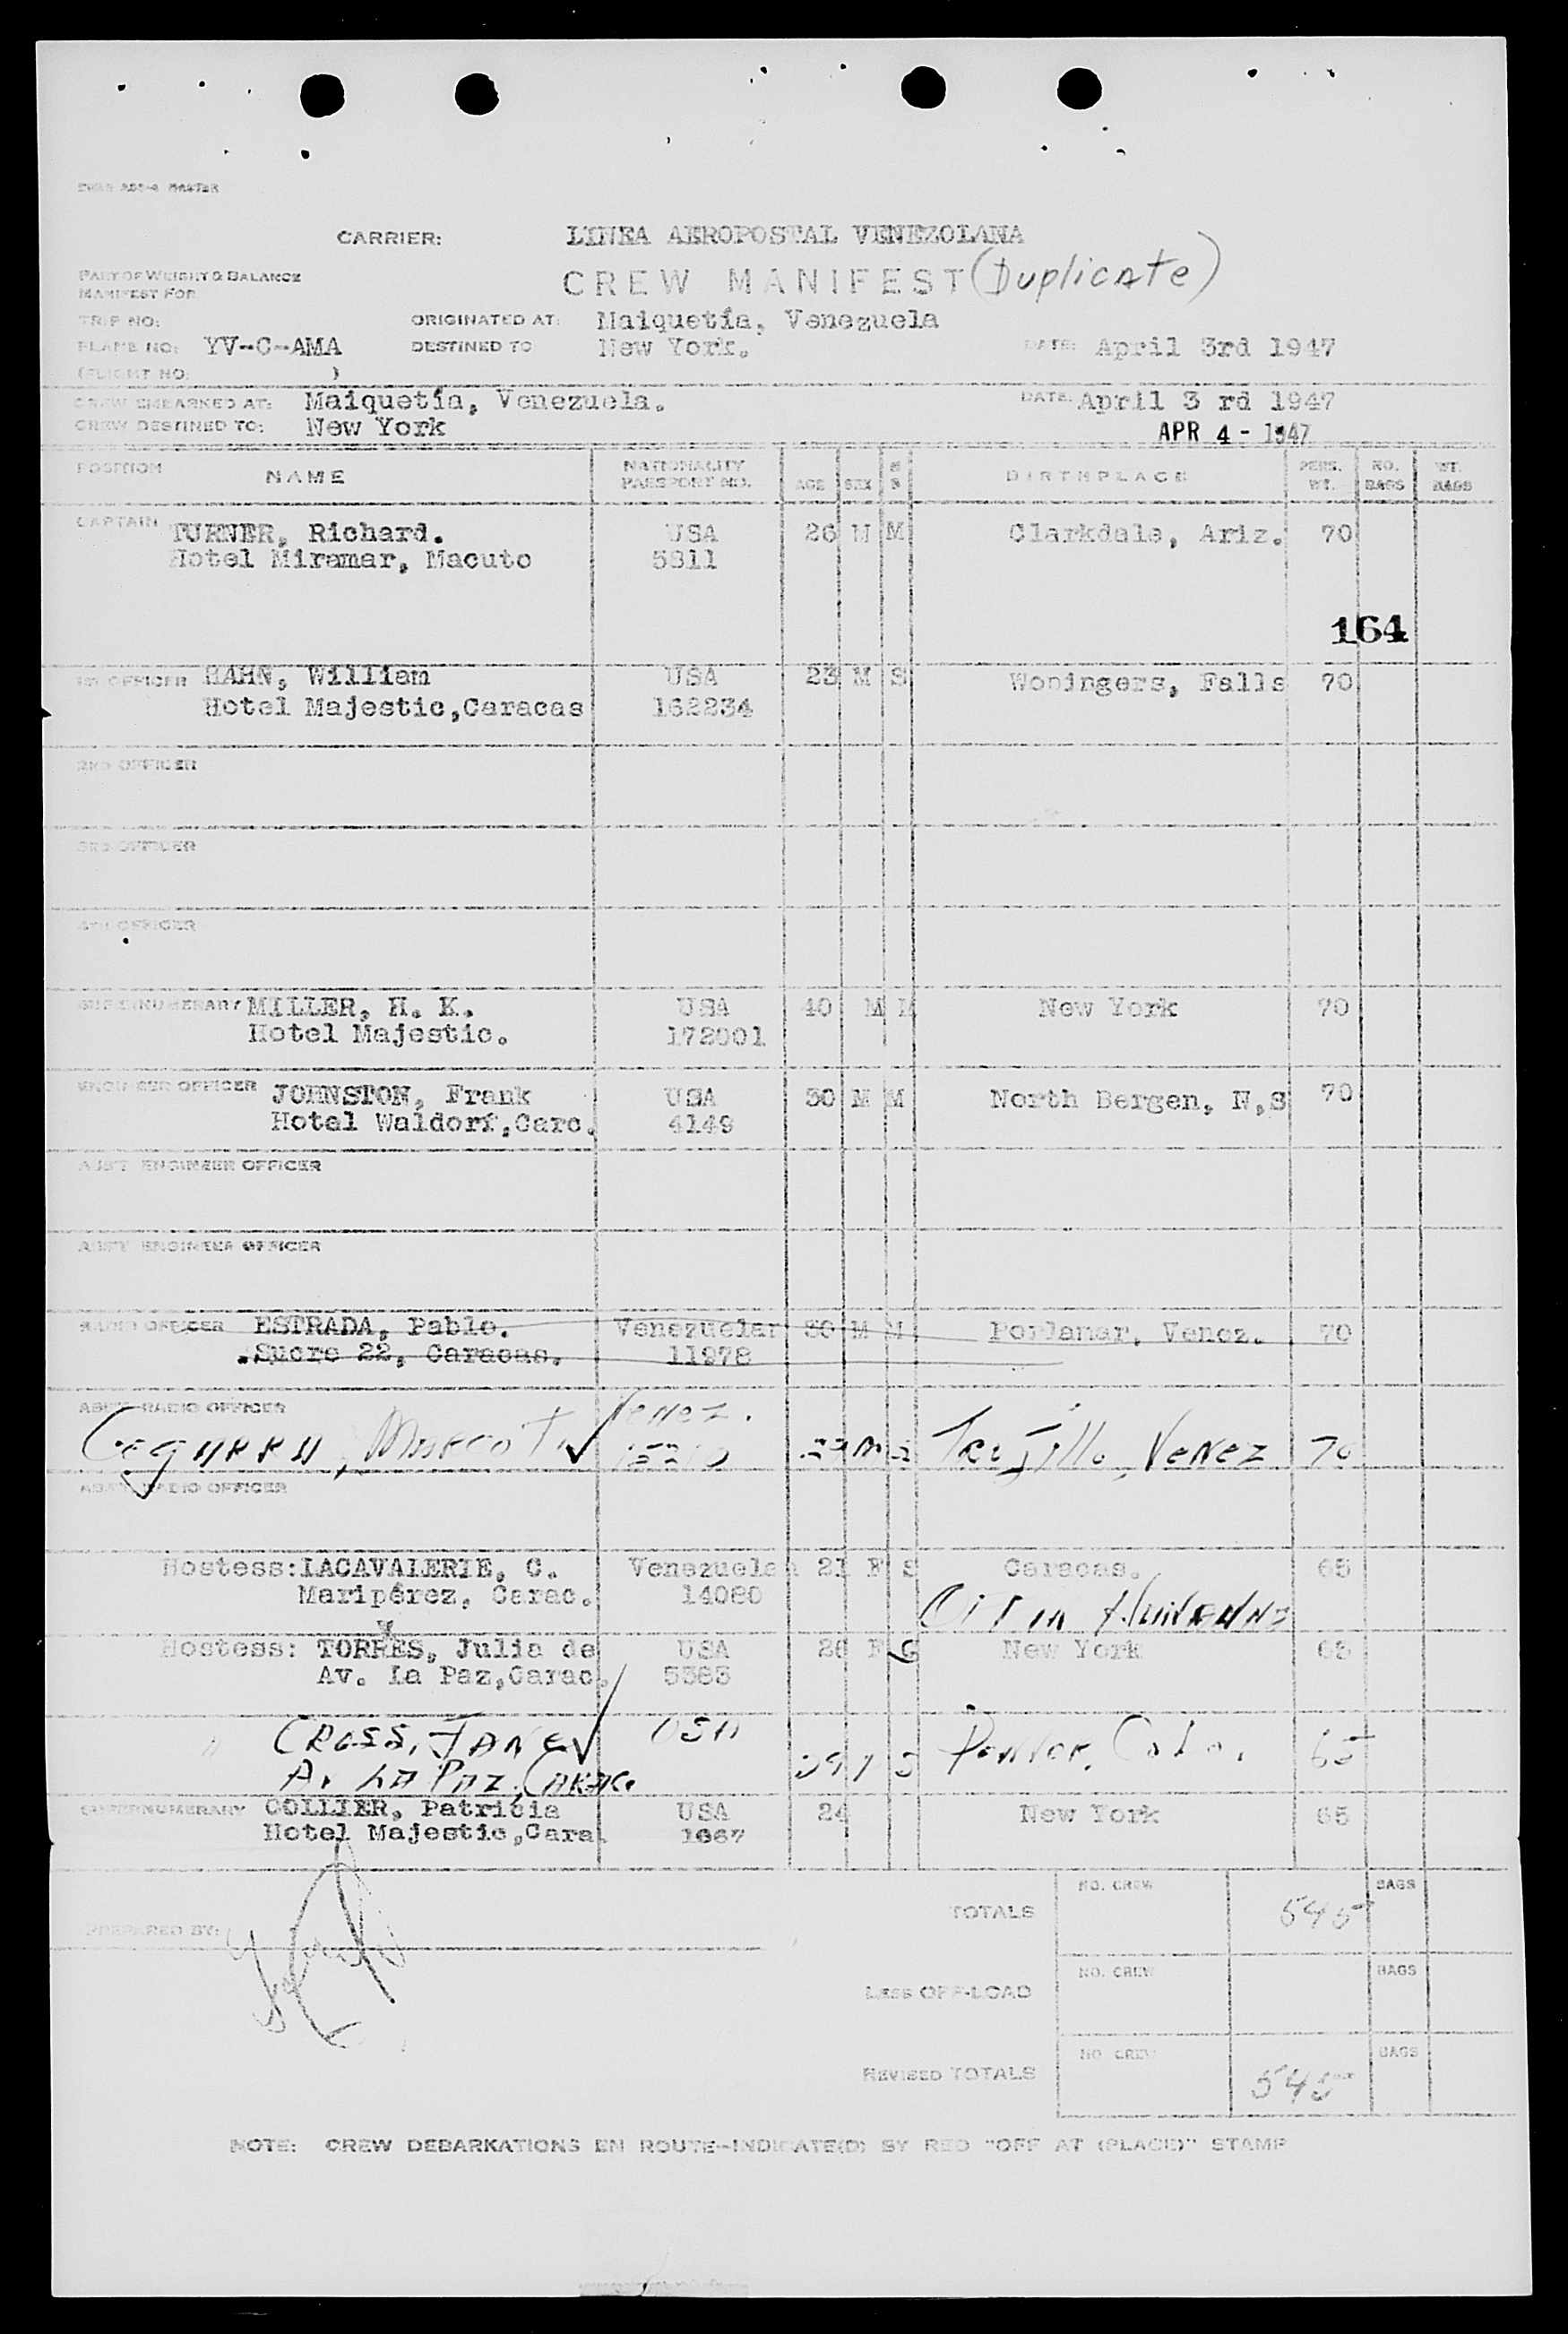 CARRIER: LINEA AEROPOSTAL VENEZOLANA
PART OF WEIGHT & BALANCE
MANIFEST FOR
CREW MANIFEST (Duplicate)
TRIP NO: ORIGINATED AT: Maiquetía, Venezuela
PLANE NO: YV-C-AMA DESTINED TO New York. DATE: April 3rd 1947
(FLIGHT NO. )
CREW EMBARKED AT: Maiquetía, Venezuela. DATE: April 3 rd 1947
CREW DESTINED TO: New York
APR 4 - 1947
POSITION NAME NATIONALITY PASSPORT NO. AGE SEX BIRTHPLACE PERS. WT. NO. BAGS WT. BAGS
CAPTAIN TURNER, Richard. USA 26 M M Clarkdale, Ariz. 70
Hotel Miramar, Macuto 5811
164
1ST OFFICER HAHN, William USA 23 M S Falls 70
Hotel Majestic,Caracas 162234
2ND OFFICER
3RD OFFICER
4TH OFFICER
SUPERNUMERARY MILLER, H. K. USA 40 M M New York 70
Hotel Majestic. 172001
ENGINEER OFFICER JOHNSTON, Frank USA 30 M M North Bergen, N,S 70
Hotel Waldorf,Carc. 4149
ASS'T ENGINEER OFFICER
ASS'T ENGINEER OFFICER
RADIO OFFICER ESTRADA, Pablo. Venezuelan 30 M M Porlamar, Venez. 70
Sucre 22, Caracas. 11978
ASS'T RADIO OFFICER Venez.
Marco T. 29 M S Trujillo, Venez 70
ASS'T RADIO OFFICER
Hostess: LACAVALERIE, C. Venezuelan 21 F S Caracas. 65
Maripérez, Carac. 14080
Hostess: TORRES, Julia de USA 26 F New York 65
Av. La Paz,Carac. 5383
" CROSS, JANE USA 29 S Denver, Colo. 65
Av LA PAZ, CARAC.
SUPERNUMERARY COLLIER, Patricia USA 24 New York 65
Hotel Majestic,Cara. 1067
NO. CREW BAGS
TOTALS 545
PREPARED BY:
NO. CREW BAGS
LESS OFF-LOAD
NO. CREW BAGS
REVISED TOTALS 545
NOTE: CREW DEBARKATIONS EN ROUTE-INDICATE(D) BY RED "OFF AT (PLACE)" STAMP